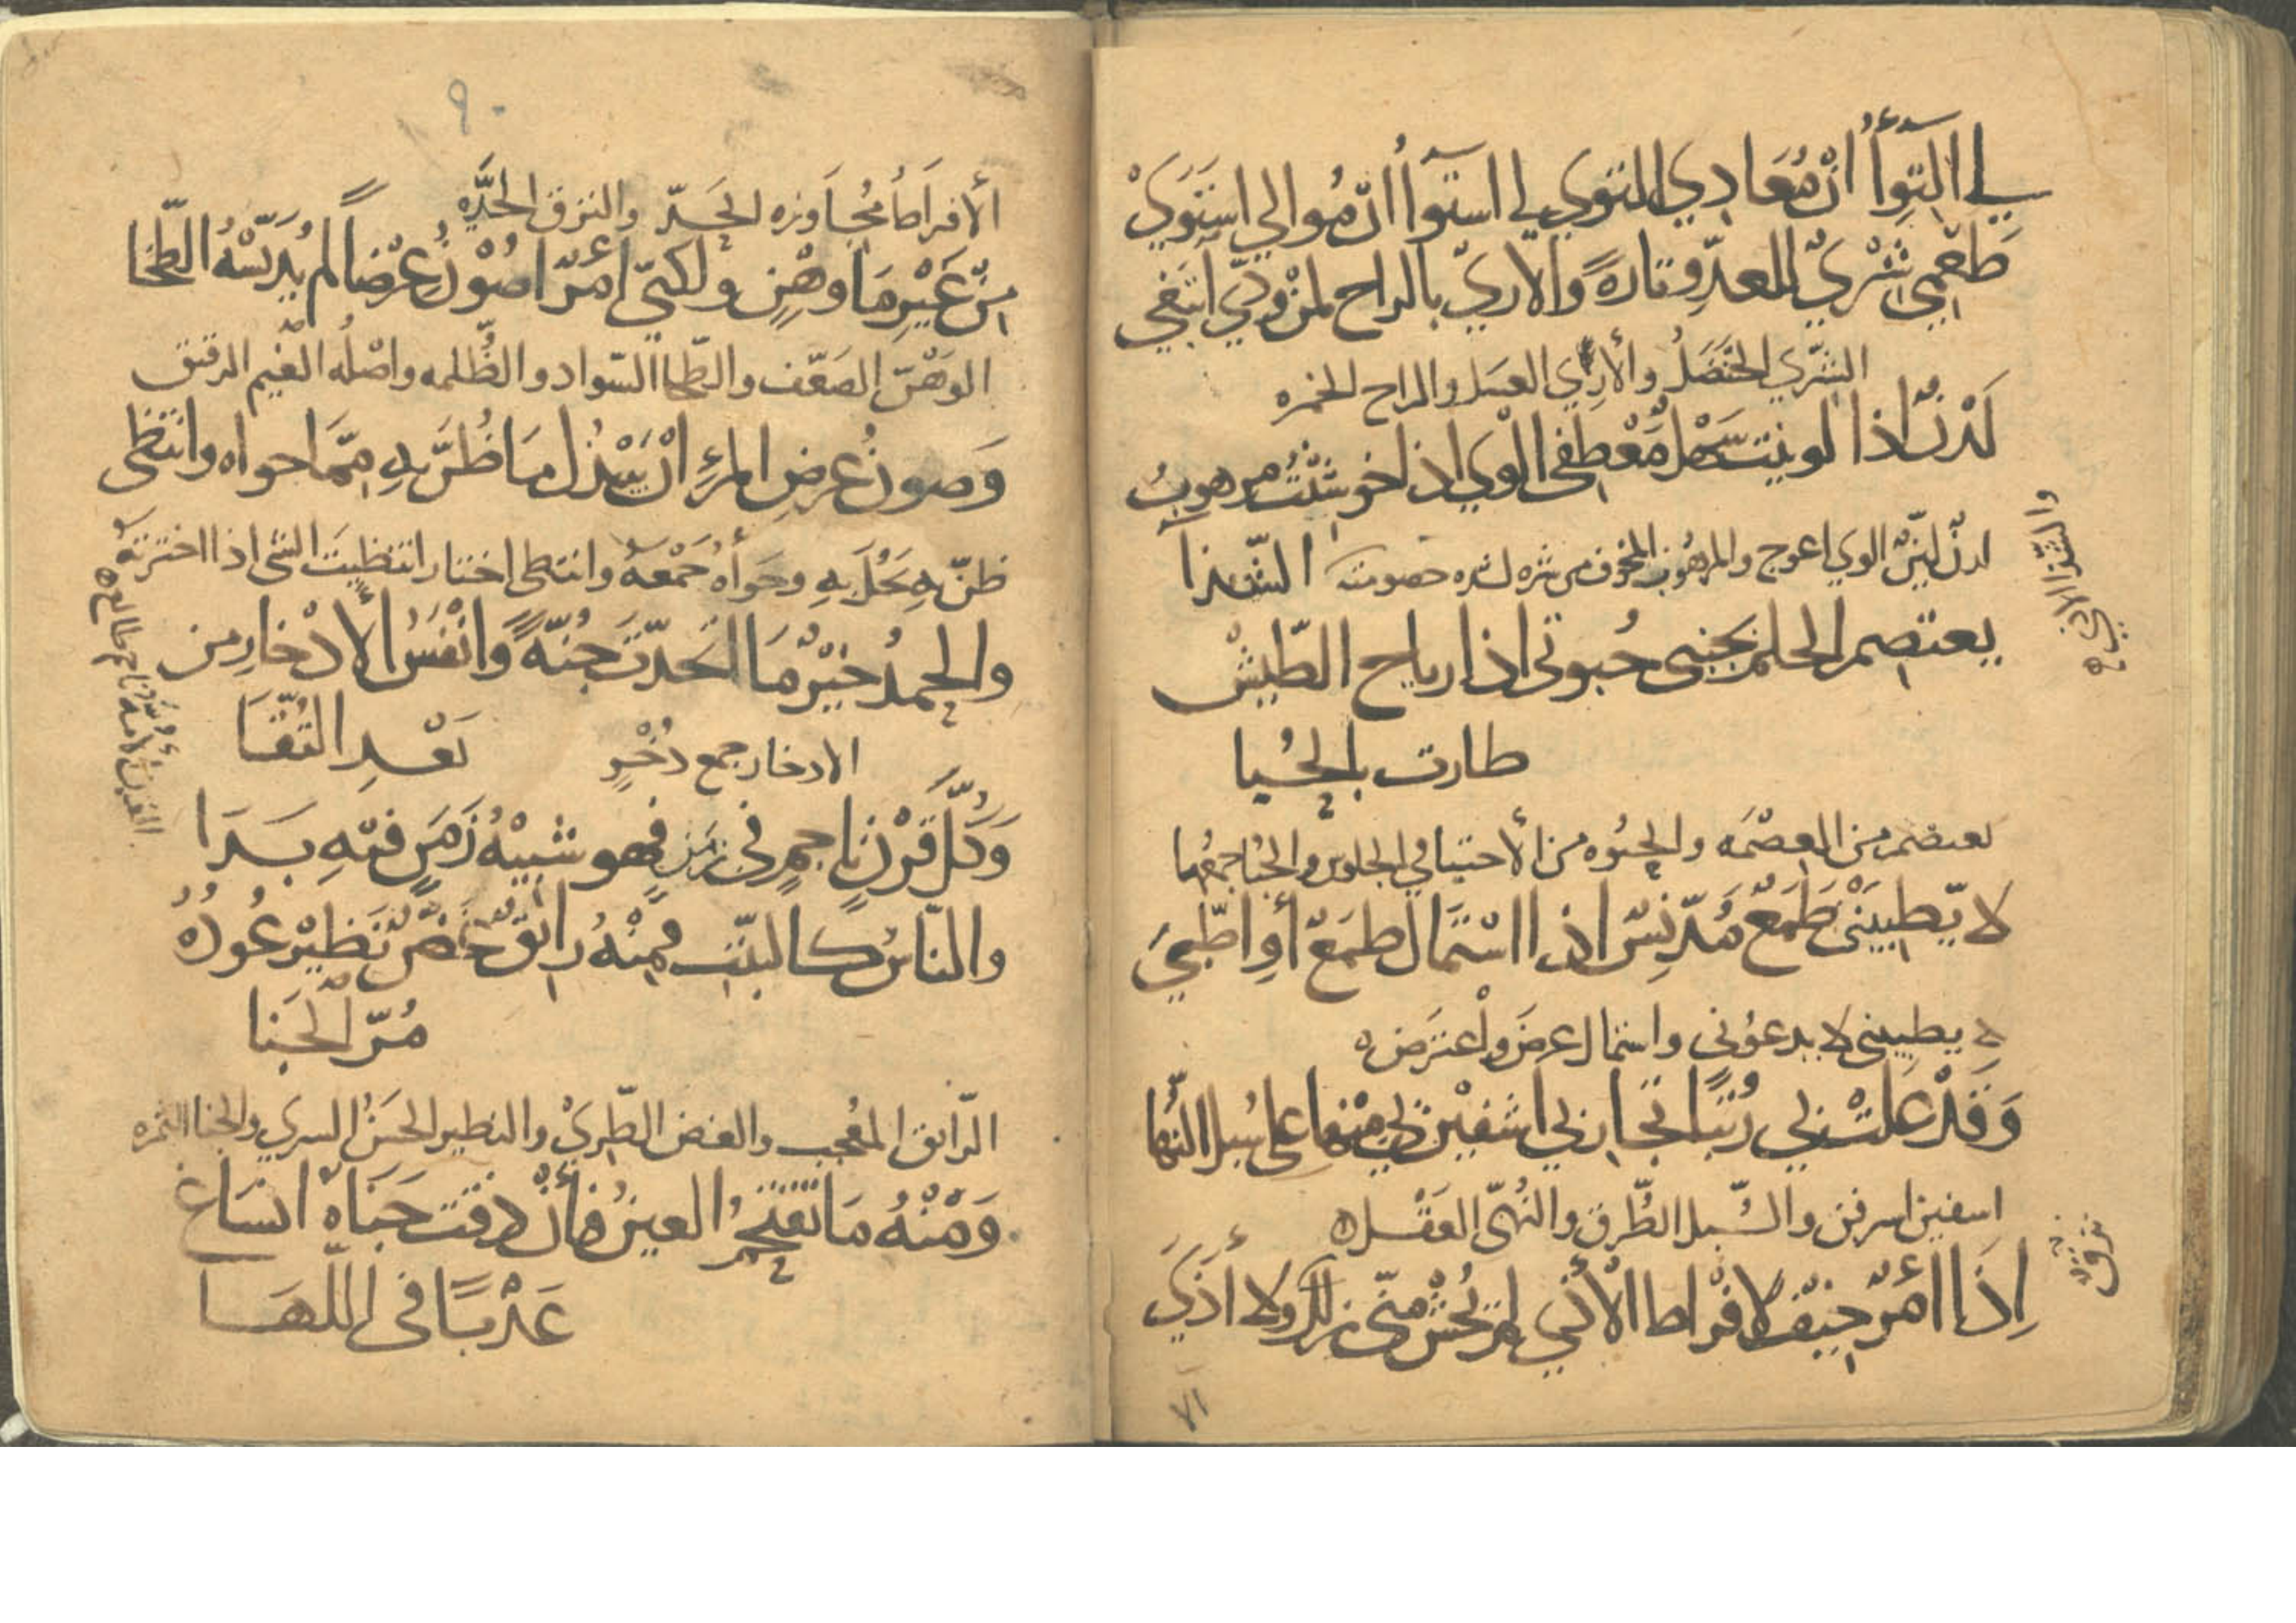 لي التوأ ان معادي التوي لي استوا ان موالي استوي
طعمي شري للعدو تارة والاري بالراح لمن ودي ابتغي
الشري الحنضل والأري العسل والراح الخمره
لدن اذا لوينت سهل معطفي الوي اذا خوشنت مرهوب
لدن لين الوي اعوج والمرهوب المخوف من شره لشده خصومته الشذا
والشذا الاذي
يعتصم الحلم بجنبي حبوتي اذا رياح الطيش
طارت بالحبا
يعتصم من العصمه والحبوه من الأحتبا في الجلوس والحبا جمعها
لا يطبيني طمع مدنس اذا استمال طمع أو اطبي
لا يطبيني لا يدعوني واستمال عرض واعترض
وقد علت بي رتبا تجاربي اشفين بي منها على سبل النها
اسفين اسرفن والسبل الطرق والنهى العقل
اذا امرء خيف لافراط الأذي لم يخش مني نزق ولا أذي
نزق
٧١
٩٠
الافراط مجاوزه الحد والنزق الحده
من غير ما وهن ولكني امرء اصون عرضا لم يدنسه الطخا
الوهن الضعف والطخا السواد والظلمه واصله الغيم الرقيق
وصون عرض المرء ان يبذل ما ضن به مما حواه وانتظى
ظن به بخل به وحواه جمعه وانتظى اختار انتظيت الشي اذا اخترته
والحمد خير ما اتخذت جنة وانفس الأدخار من
بعد التقا
الادخار جمع دخر
وكل قرن ناجم في زمن فهو شبيه زمن فيه بدا
والناس كالنبت فمنه رائق غض نظير عوده
مر الجنا
الرائق المعجب والغض الطري والنظير الحسن السري والجنا الثمره
ومنه ما تقتحم العين فأن ذقت جناه انساغ
عذبا في اللها